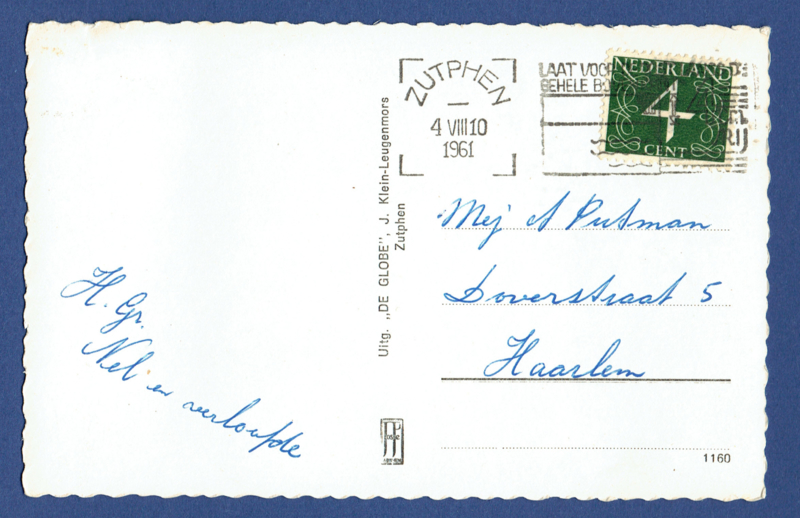 ZUTPHEN
4 VIII 10
1961
LAAT VOOR
GEHELE
NEDERLAND
4
CENT
Uitg. „DE GLOBE", J. Klein-Leugenmors
Zutphen
Mej A Putman
Doverstraat 5
Haarlem
H. Gr.
Nel en verloofde
1160